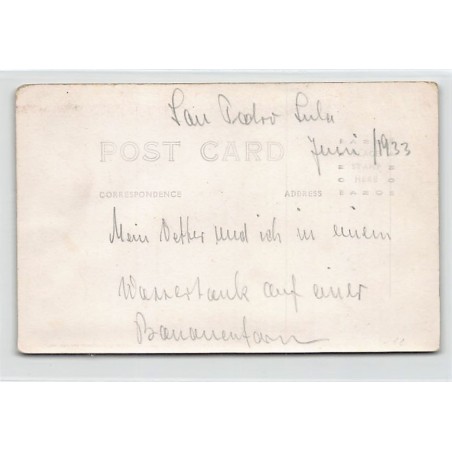 San Pedro Sula
Juni/1933
POST CARD
CORRESPONDENCE
ADDRESS
Mein Vetter und ich in einem
Wassertank auf einer
Bananenfarm